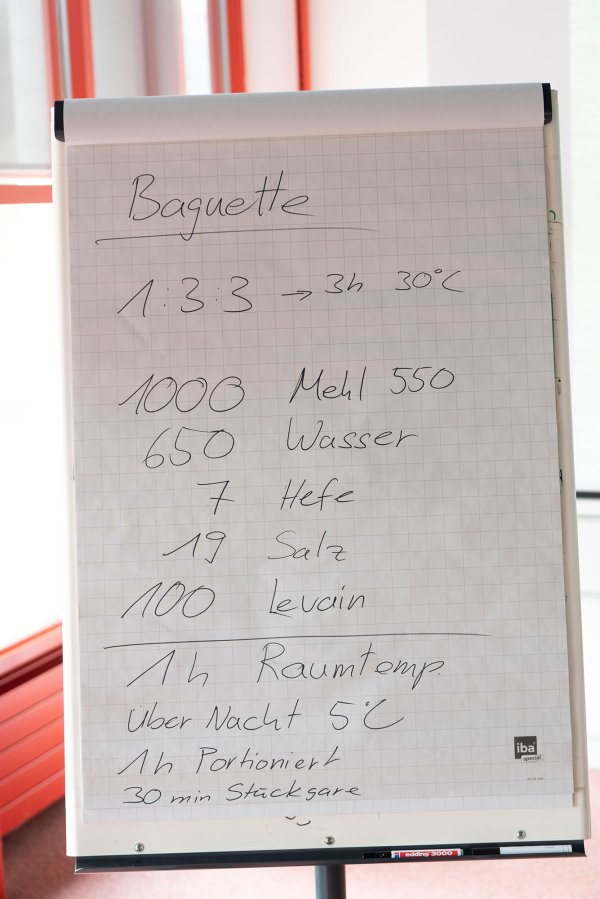 Baguette
1:3:3 → 3h 30°C
1000 Mehl 550
650 Wasser
7 Hefe
19 Salz
100 Levain
1h Raumtemp.
Über Nacht 5°C
1h Portioniert
30 min Stückgare
iba
special
edding 3000